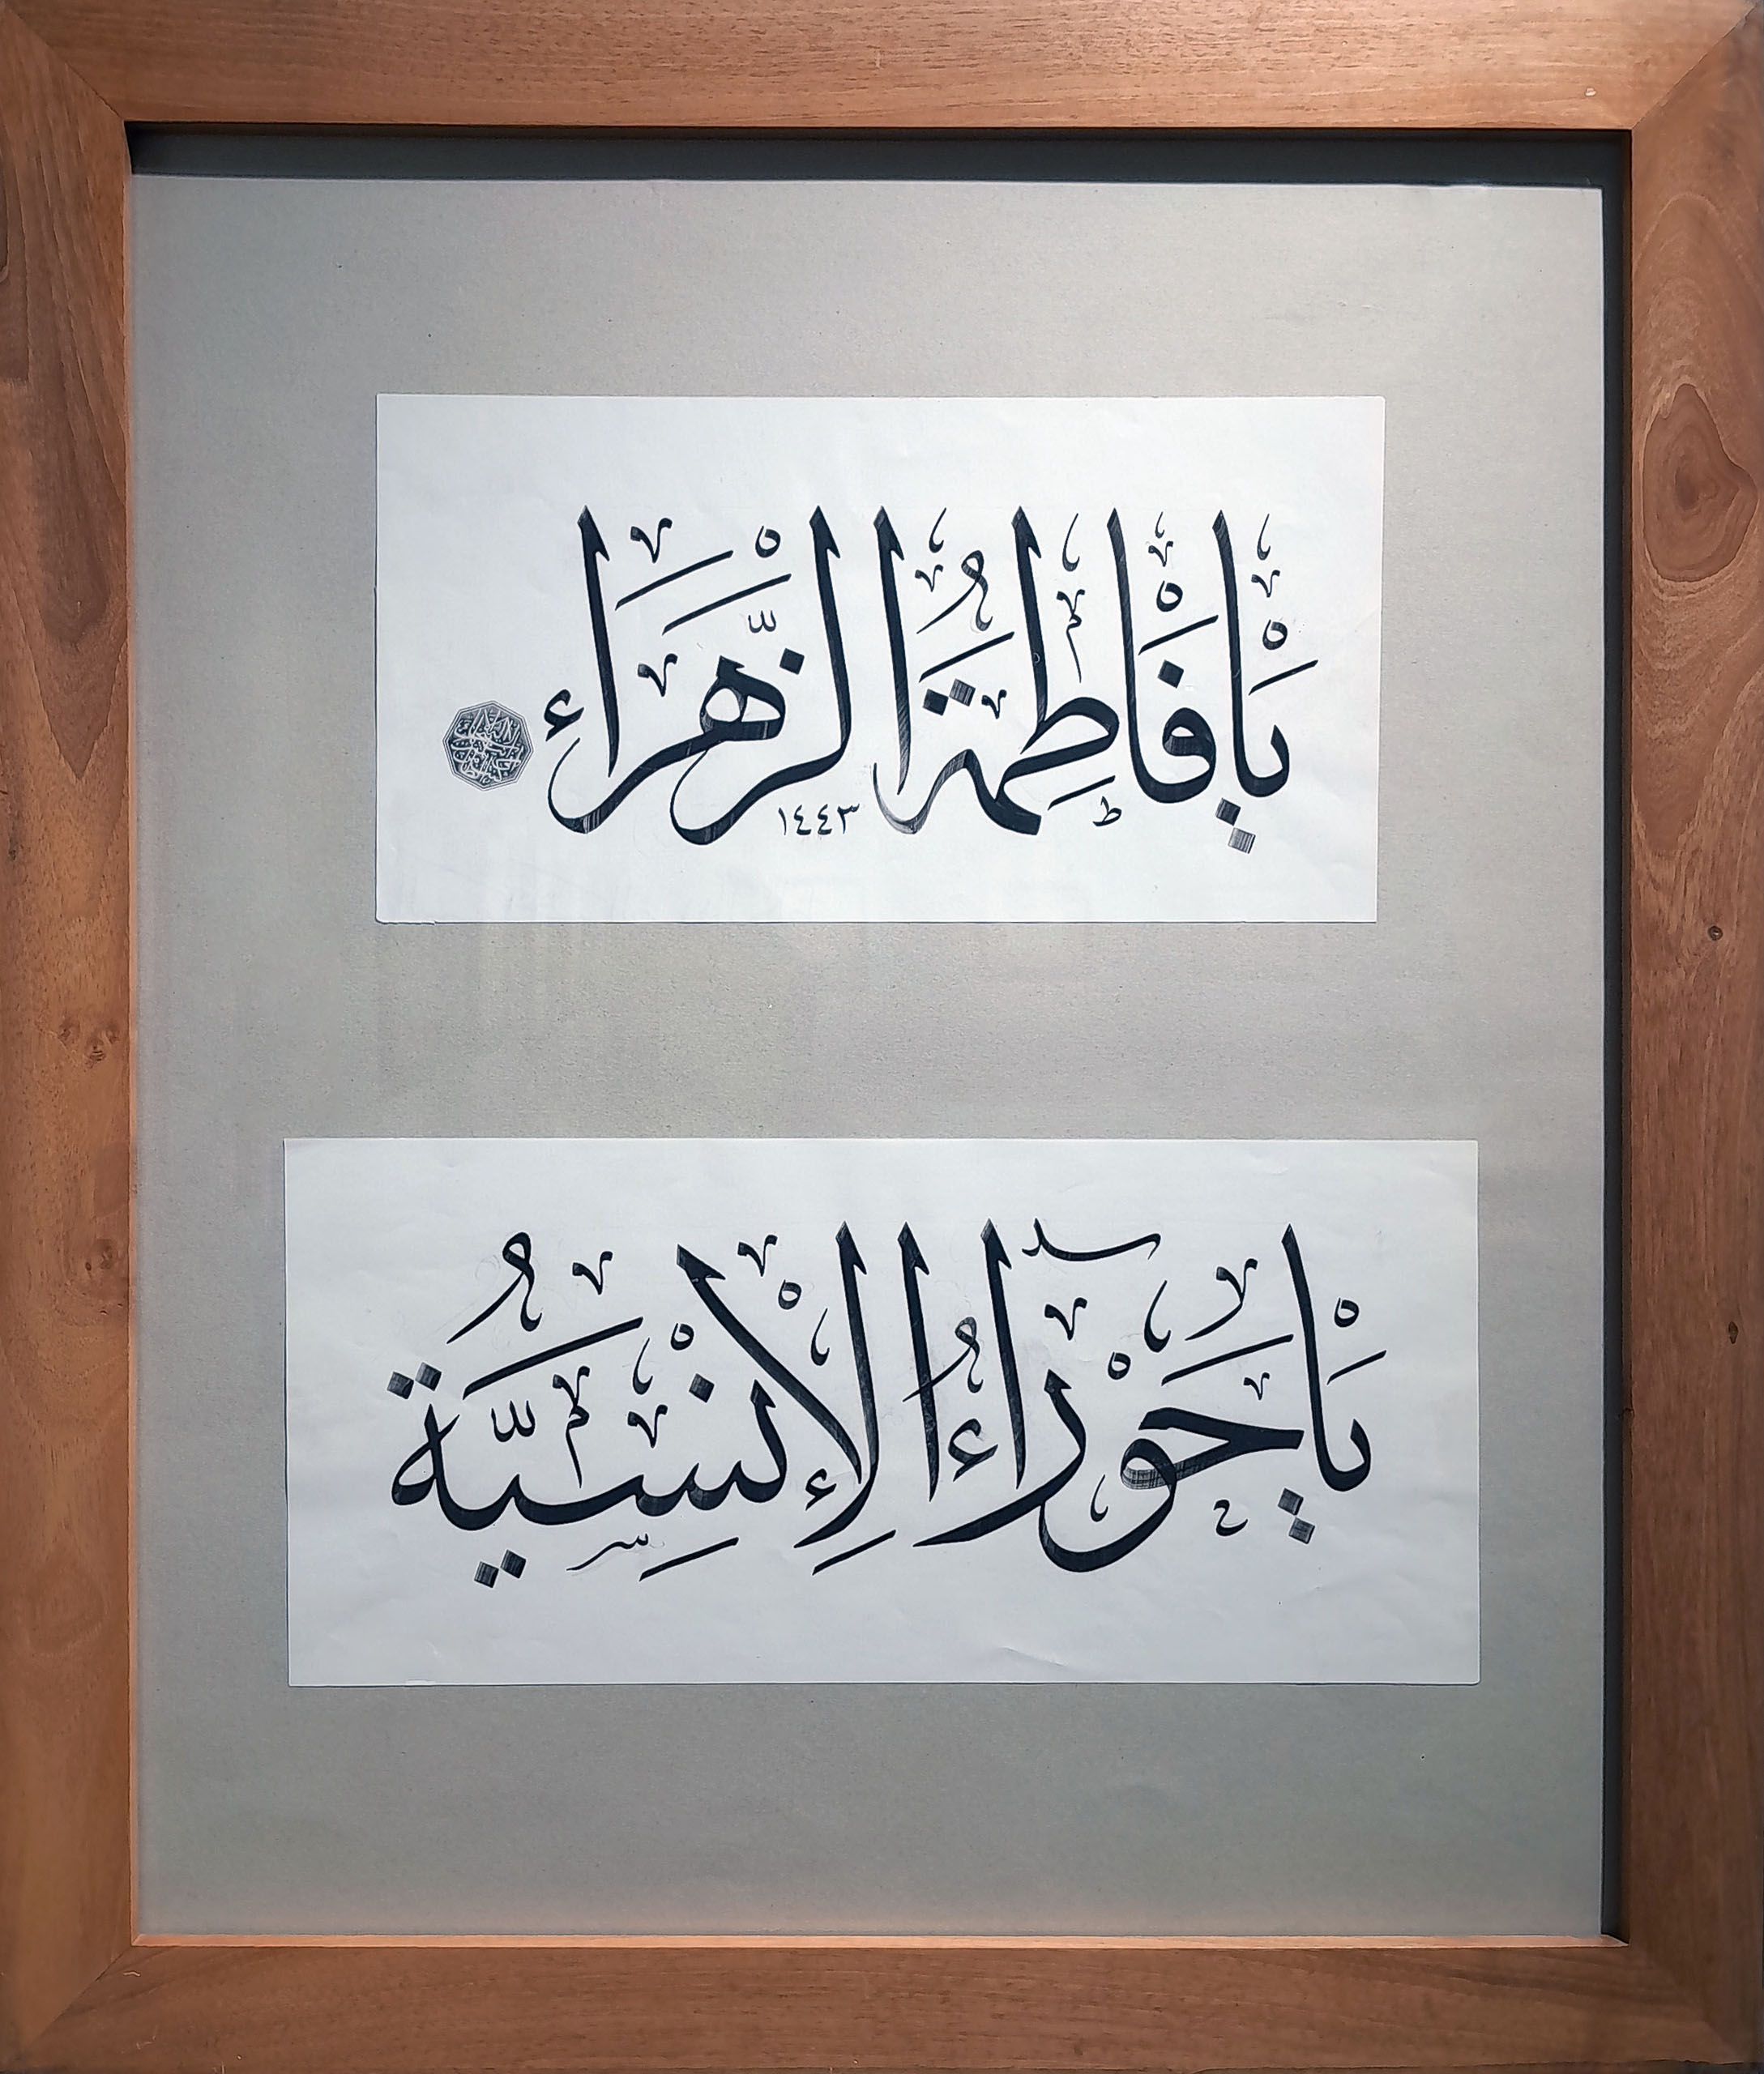 يَا فَاطِمَةُ الزَّهْرَاء
١٤٤٣
يَا حَوْرَاءُ الْإِنْسِيَّةُ